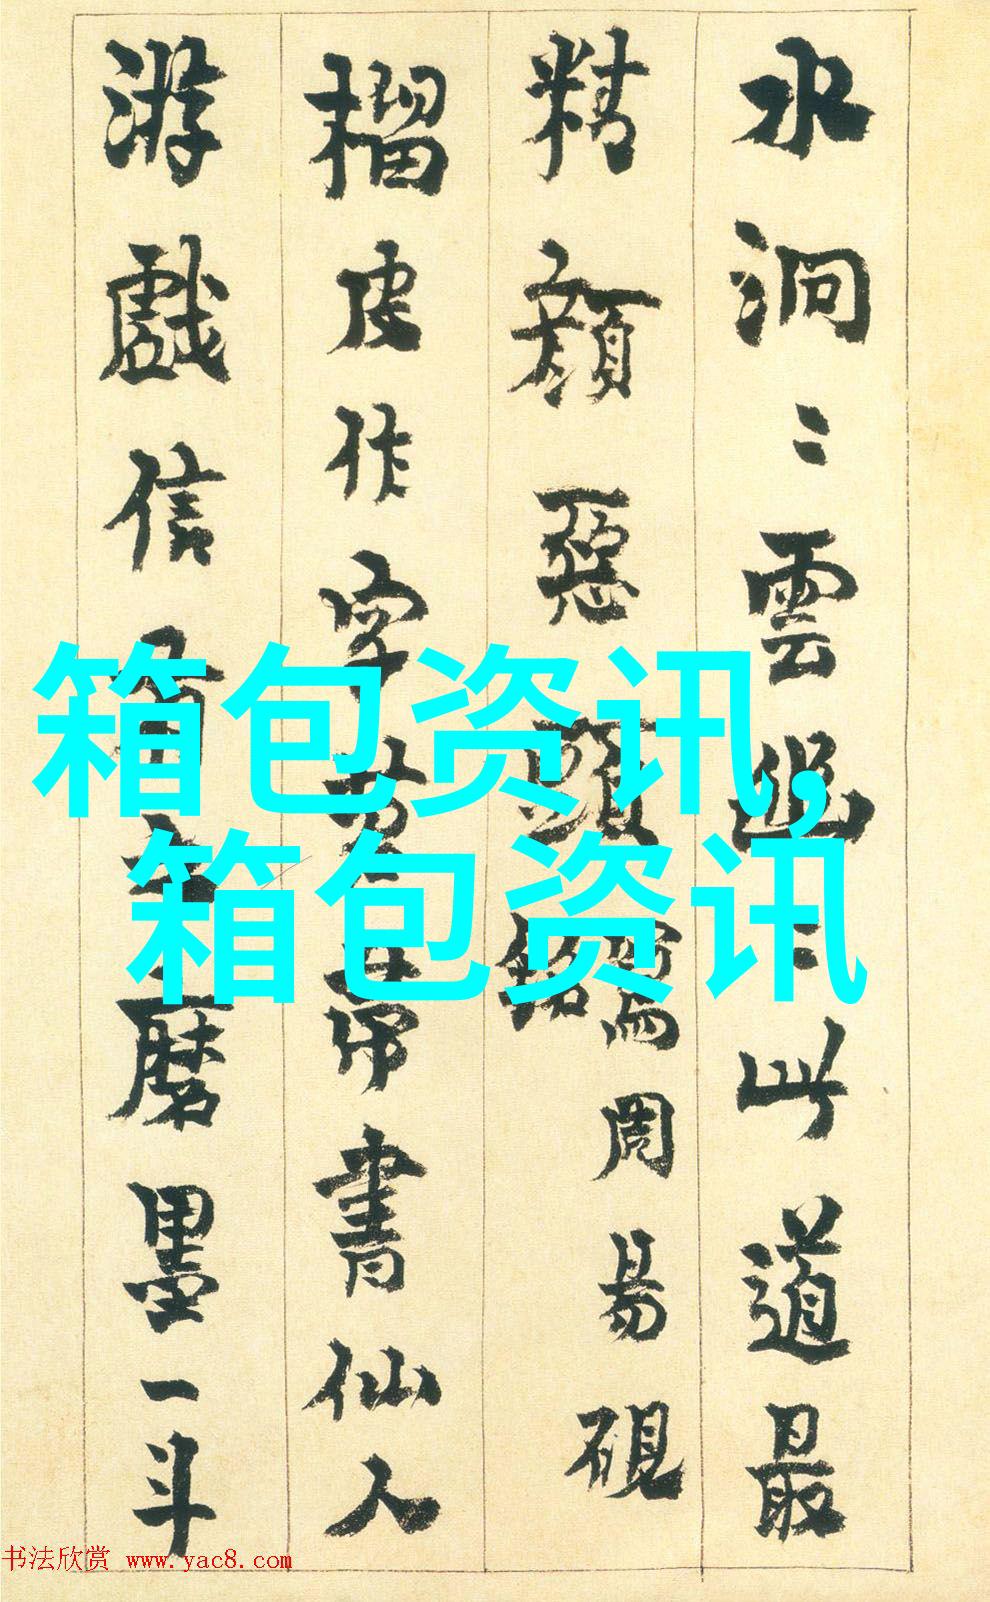 水洞〻雲幽〻此道最
精顏惡頭
銘
窩周易硯
榴皮作字
帚書仙人
游戲信
磨墨一斗
箱包资讯,
箱包资讯
书法欣赏 www.yac8.com